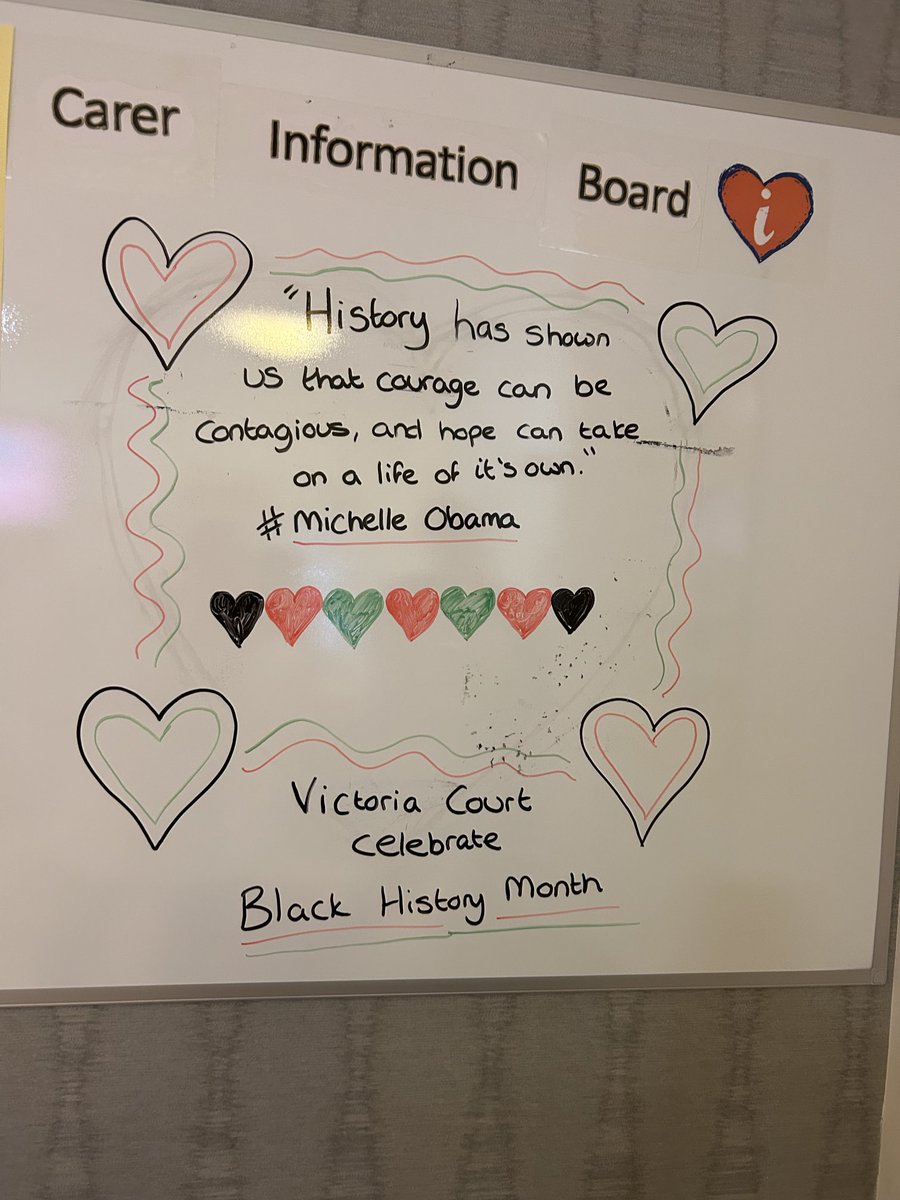 Carer Information Board i
"History has shown
us that courage can be
contagious, and hope can take
on a life of it's own."
# Michelle Obama
Victoria Court
celebrate
Black History Month